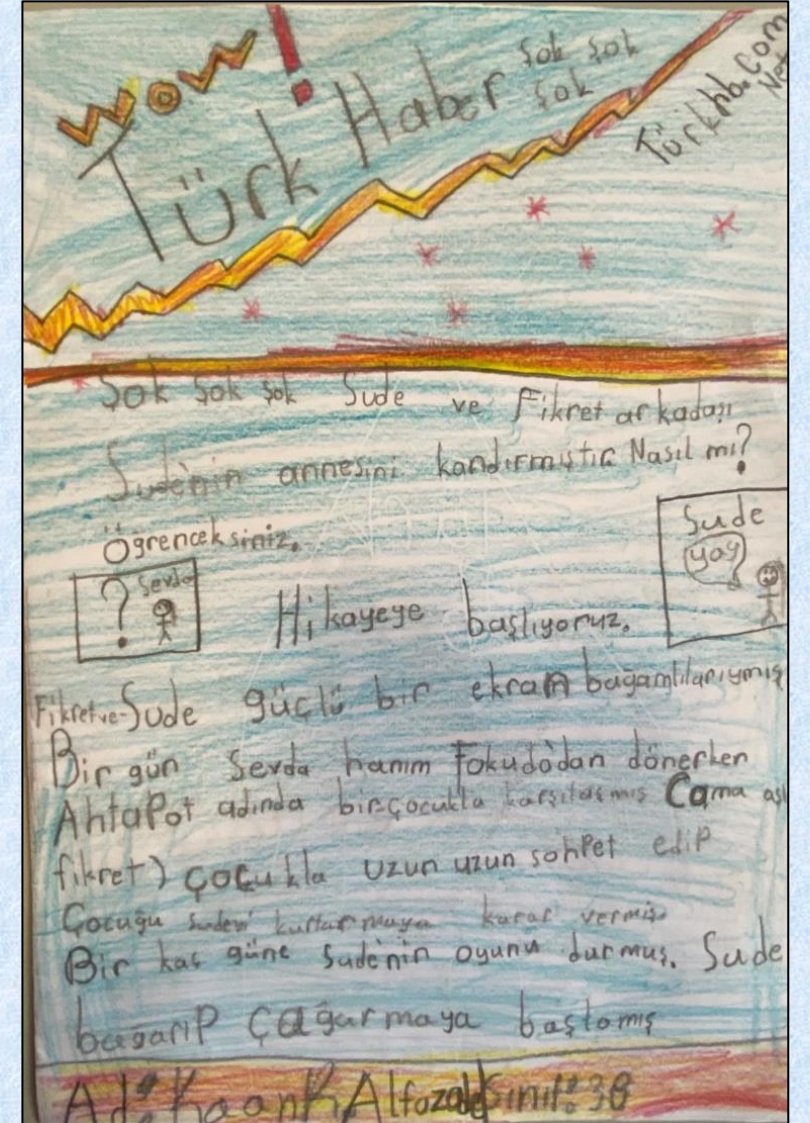 WOW!
Türk Haber
şok şok
şok
Türkhb.com
Net
Şok şok şok Sude ve Fikret arkadaşı
Sude'nin annesini kandırmıştır. Nasıl mı?
Öğrenceksiniz.
? Sevda
Sude
yay
Hikayeye başlıyoruz.
Fikret ve Sude güçlü bir ekran bağamlılarıymış
Bir gün Sevda hanım Fokudo'dan dönerken
Ahtapot adında bir çocukla karşılaşmış Cama
fikret) çocukla uzun uzun sohpet edip
Çocuğu kurtarmaya karar vermiş
Bir kaç güne Sude'nin oyunu durmuş. Sude
bağarıp çağarmaya başlamış
Ad: Kaan Sınıf: 3